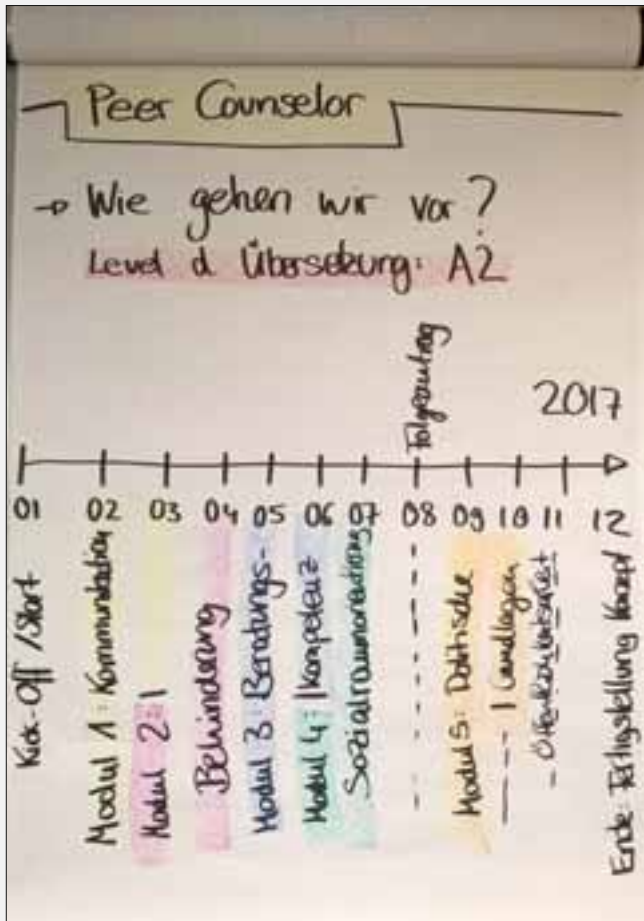 Peer Counselor
→ Wie gehen wir vor?
Level d. Übersetzung: A2
2017
Folgeantrag
01 02 03 04 05 06 07 08 09 10 11 12
Kick-Off / Start
Modul 1: Kommunikation
Modul 2:
Behinderung
Modul 3: Beratungs-
Modul 4: Kompetenz
Sozialraumorientierung
Modul 5: Politische
Grundlagen
Öffentlichkeitsarbeit
Ende: Fertigstellung Konzept